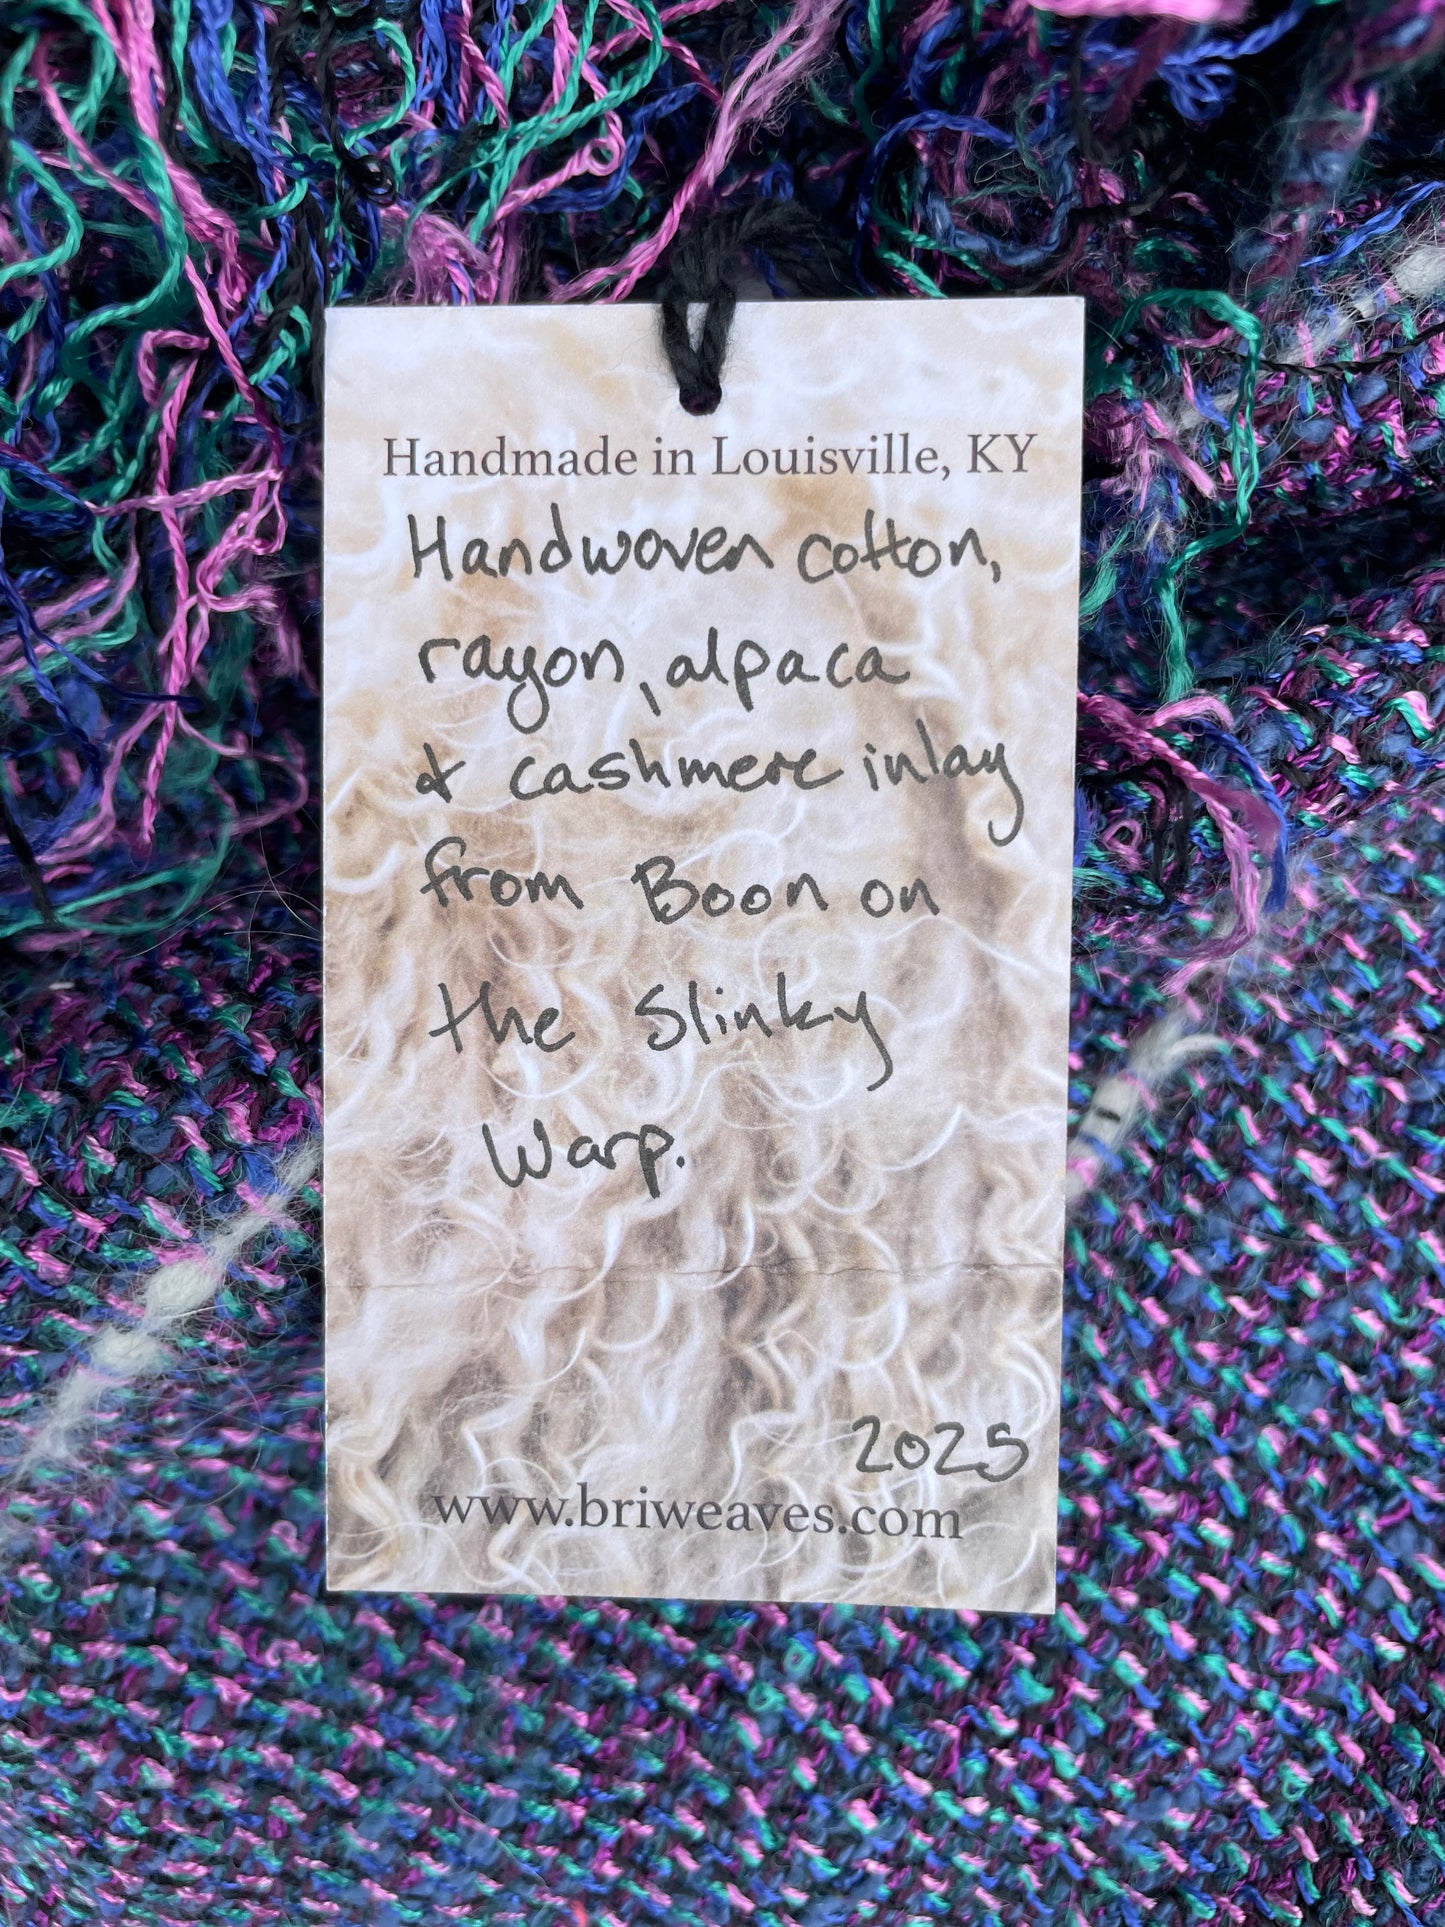 Handmade in Louisville, KY
Handwoven cotton,
rayon, alpaca
& cashmere inlay
from Boon on
the Slinky
Warp.
2025
www.briweaves.com